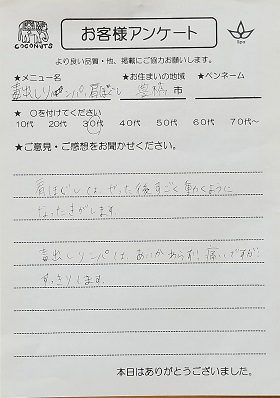 COCONUTS
お客様アンケート
Spa
より良い品質・他、掲載にご協力お願いします。
★メニュー名 ★お住まいの地域 ★ペンネーム
毒出しリンパ、肩ほぐし 豊橋市
★ ○を付けてください
10代 20代 30代 40代 50代 60代 70代～
★ご意見・ご感想をお聞かせください。
肩ほぐしは、やった後すごく動くように
なった気がします
毒出しリンパは、あいかわらず!痛いですが
すっきりします。
本日はありがとうございました。